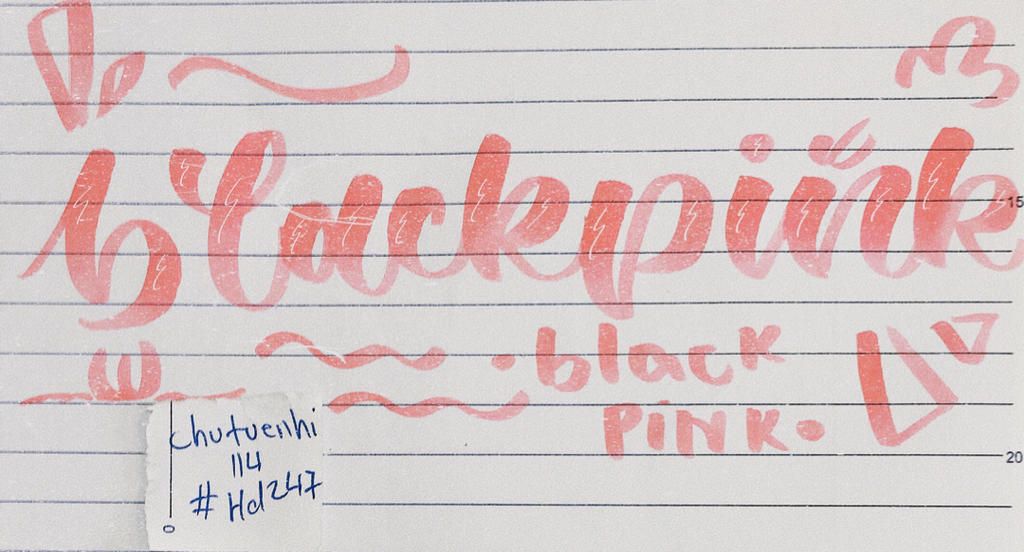 blackpink
15
black
PINK
20
chutuenhi
114
#Hd247